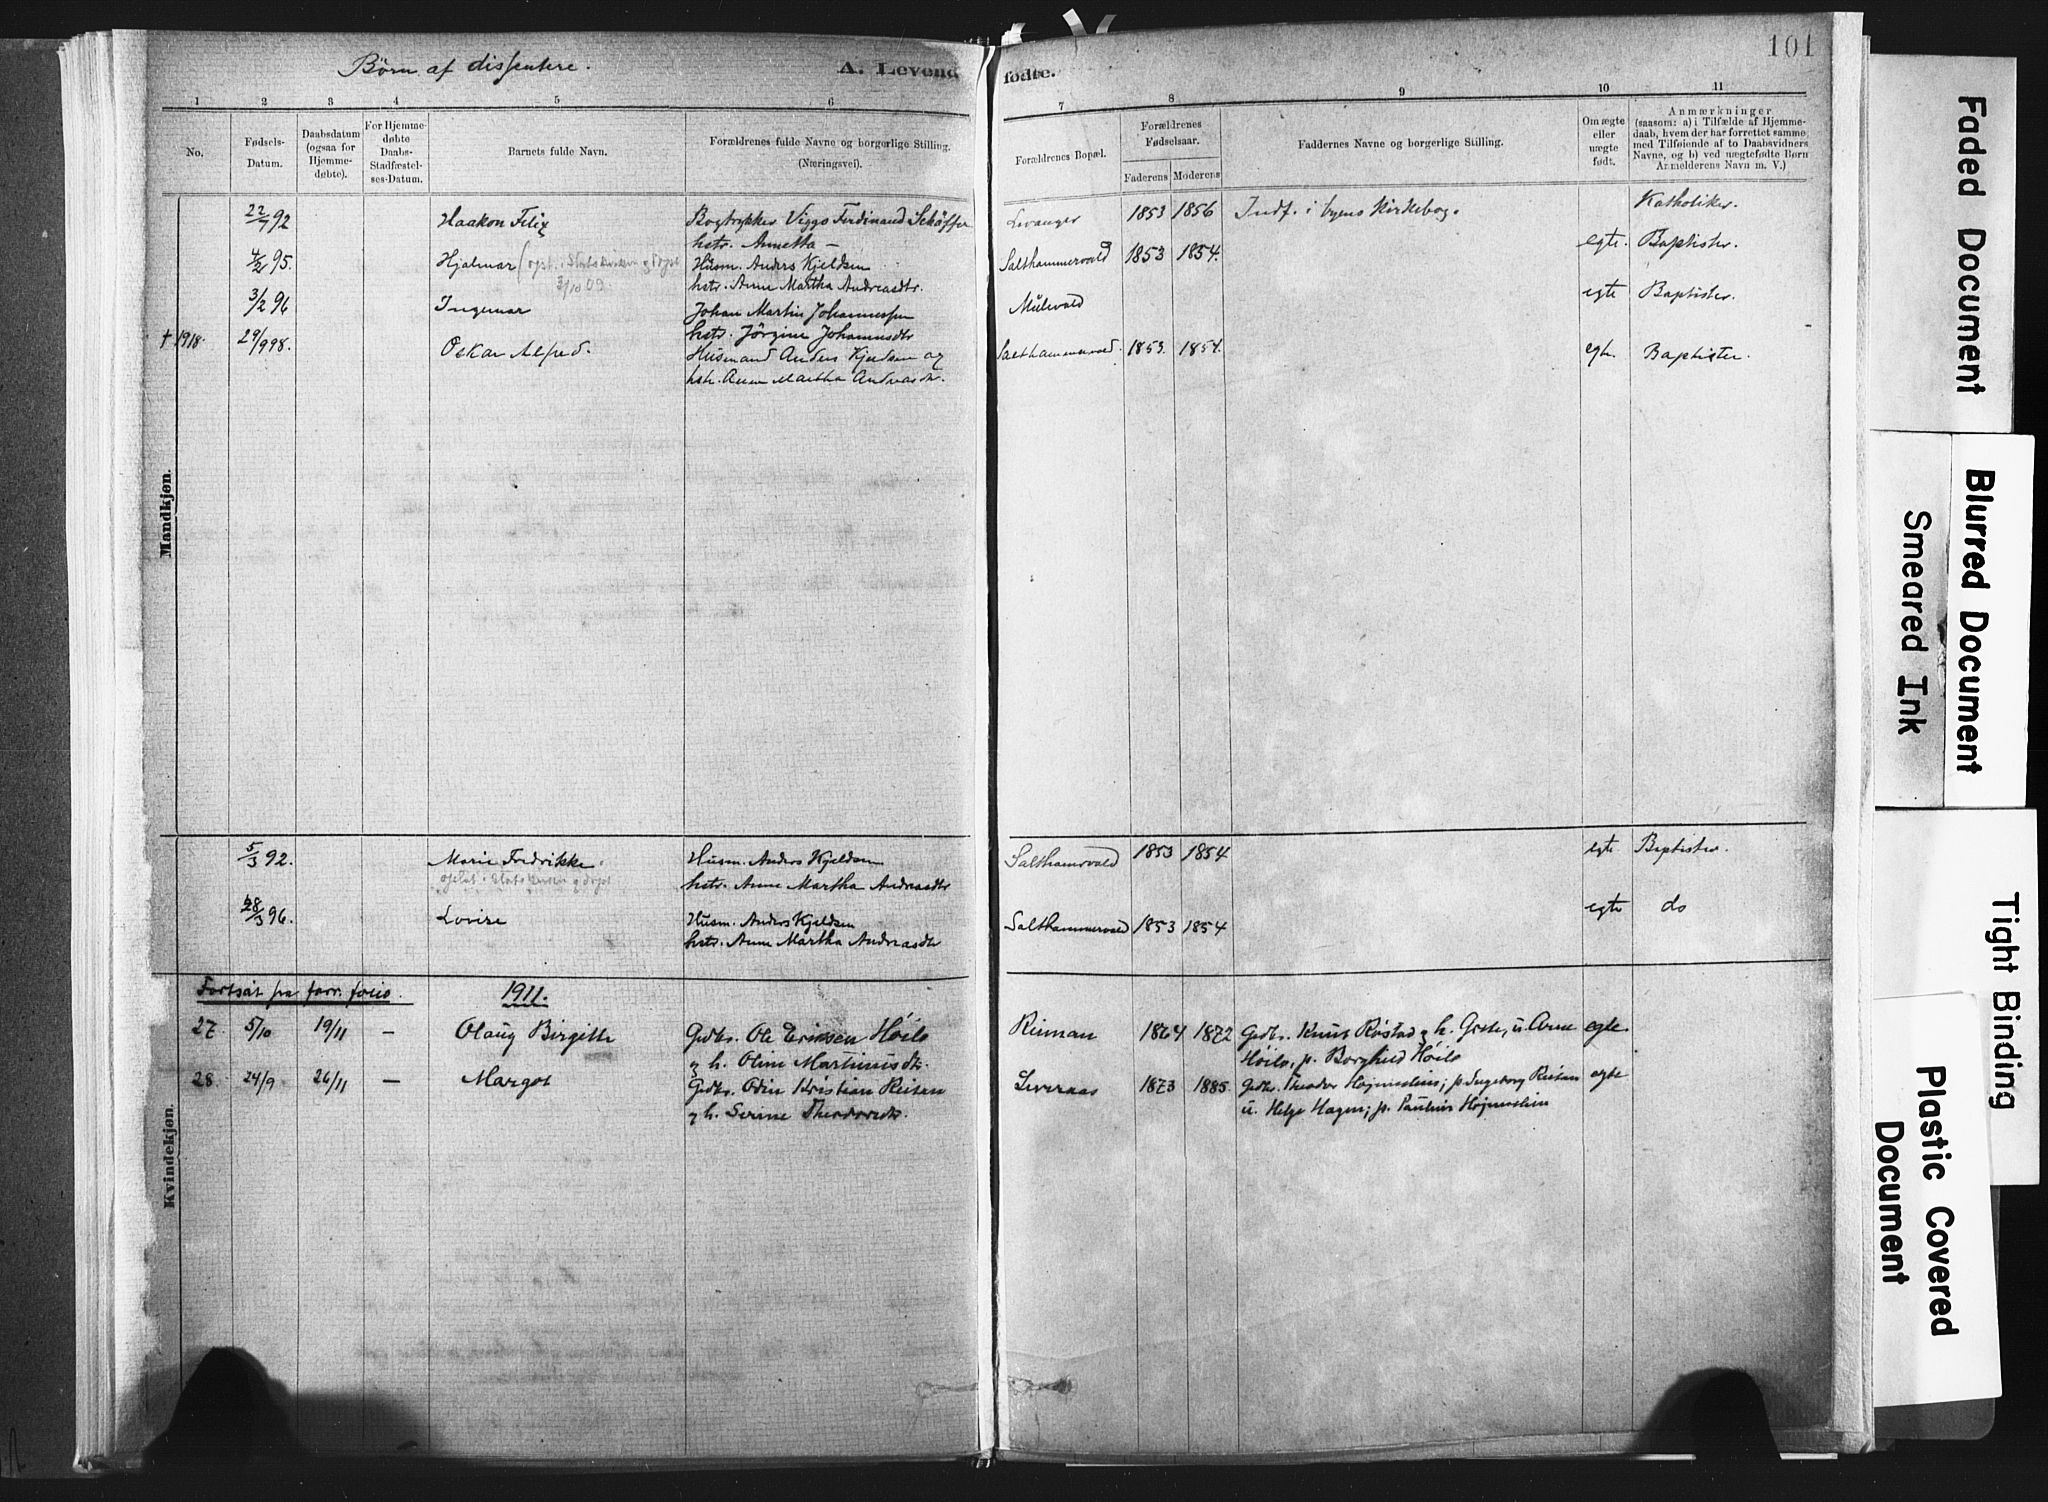 Børn af dissentere.
A. Levend
fødte.
101
1 2 3 4 5 6 7 8 9 10 11
No.
Fødsels-Datum.
Daabsdatum (ogsaa for Hjemme-døbte).
For Hjemme-døbte Daabs-Stadfæstel-ses-Datum.
Barnets fulde Navn.
Forældrenes fulde Navne og borgerlige Stilling. (Næringsvei).
Forældrenes Bopæl.
Forældrenes Fødselsaar.
Faderens Moderens
Faddernes Navne og borgerlige Stilling.
Om ægte eller uægte født.
Anmærkninger
(saasom: a) i Tilfælde af Hjemme-daab, hvem der har forrettet samme, med Tilføiende af to Daabsvidners Navne, og b) ved uægtefødte Børn Anmelderens Navn m. V.)
Mandkjøn.
22/7 92 Haakon Felix Bogtrykker Viggo Ferdinand Schøffer Levanger 1853 1856 Indf. i byens Kirkebog. Katholiker.
hstr. Annetta —
4/2 95. Hjalmar Husm. Anders Kjeldsen Salthammervald 1853 1854. egte. Baptister.
3/10 09
hstr. Anne Martha Andreasdtr.
3/2 96 Ingemar Johan Martin Johannessen Mulevald egte Baptister.
hstr. Jørgine Johannesdtr
† 1918. 29/9 98. Oskar Alfred. Husmand Anders Kjeldsen og Salthammervald. 1853. 1854. egte. Baptister.
hstr. Anne Martha Andreasdtr.
5/3 92. Marie Fredrikke Husm. Anders Kjeldsen Salthamrvald 1853 1854 egte Baptister.
hstr. Anne Martha Andreasdtr
28/3 96. Lovise Husm. Anders Kjeldsen Salthammervald 1853 1854 egte do
hstr. Anne Martha Andreasdtr
Kvindekjøn.
Fortsat fra forr. folio. 1911.
27 5/10 19/11 — Olaug Birgitte Gdbr. Ole Eriksen Höilo Reiman 1864 1872 Gdbr. Knut Röstad g h. Grete, u. Arne egte
g h. Oline Martinusdtr. Höilo, p. Borghild Höilo
28. 24/9 26/11 — Margot Gdbr. Odin Kristian Reitan Leveraas 1873 1885. Gdbr. Theodor Hojemslien; p Ingeborg Reitan egte
g h. Serine Theodorsdtr. u. Helge Hagen; p. Pauline Hojemslien
Faded Document
Blurred Document
Smeared Ink
Tight Binding
Plastic Covered
Document